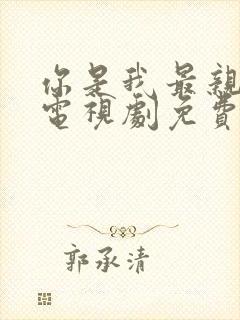 你是我最親
電視劇免費
郭承清